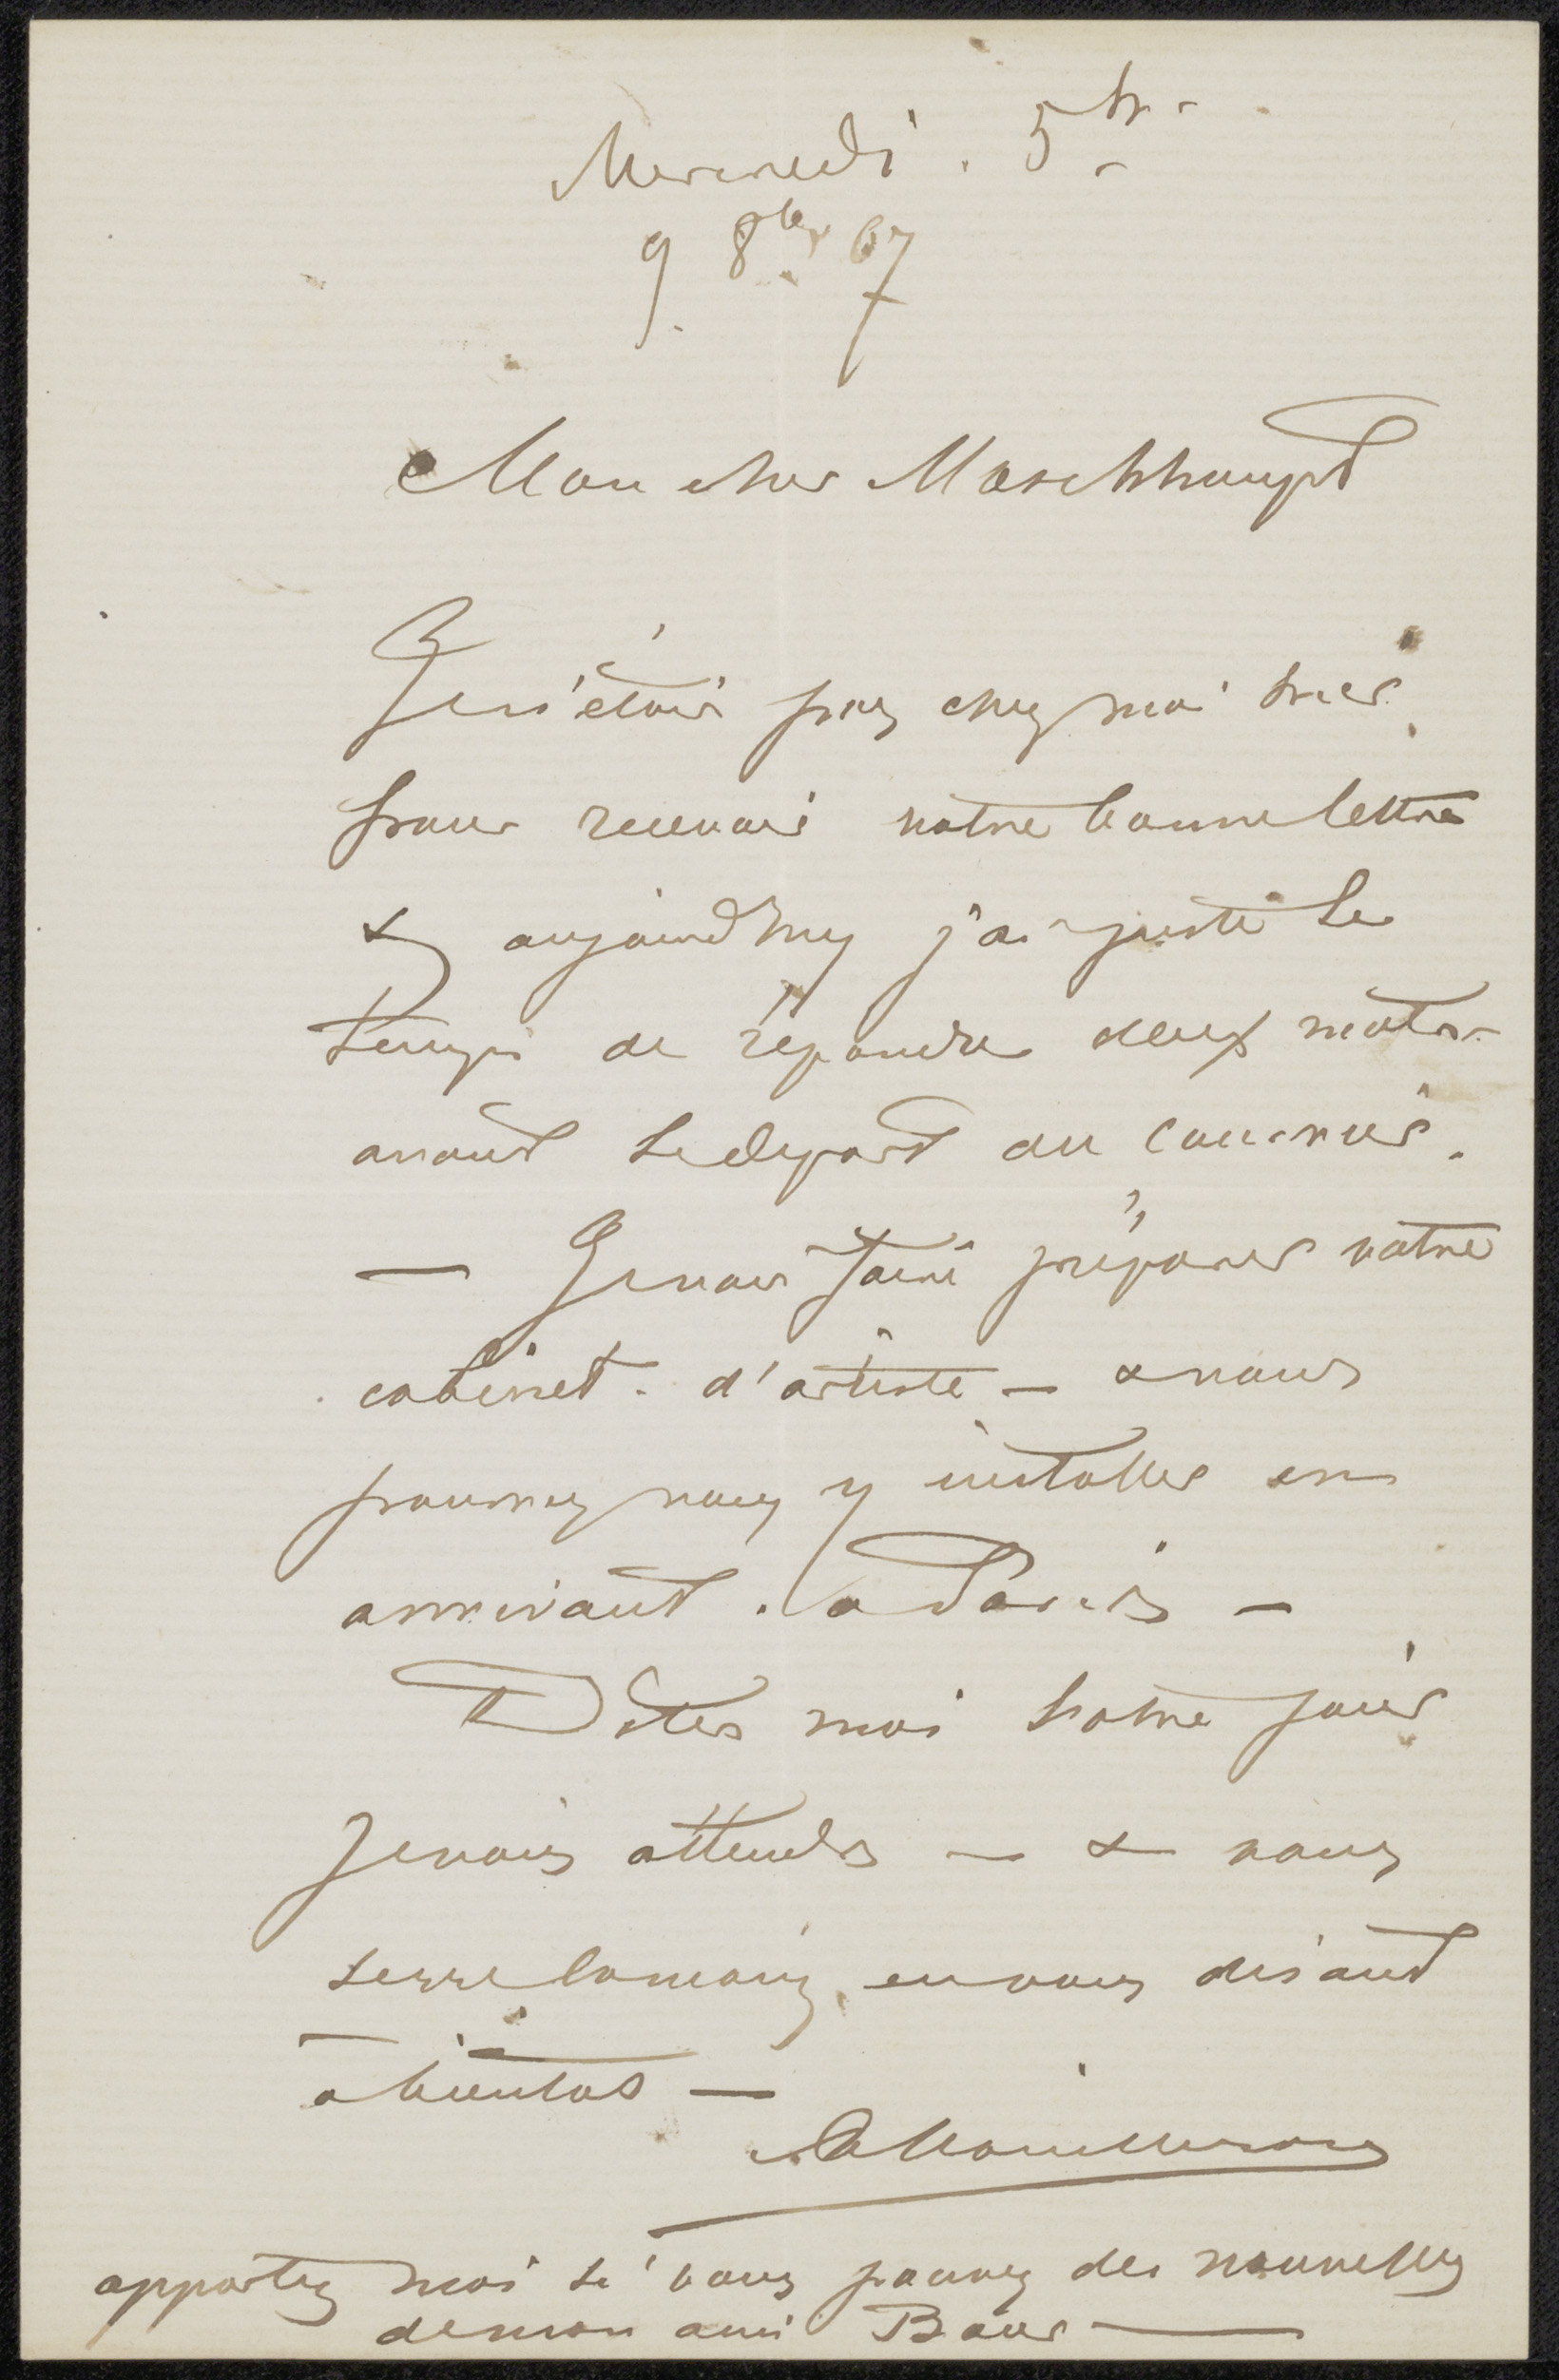 Mercredi. 5 h.
9. 8bre 67
Mon cher Maschhaupt
Je n'étais pas chez moi hier
pour recevoir votre bonne lettre
& aujourd'huy j'ai juste le
temps de répondre deux mots
avant le départ du courrier.
— Je vais faire préparer votre
cabinet d'artiste — & vous
pourrez vous y installer en
arrivant. à Paris —
Dites moi votre jour
Je vous attends — & vous
serre la main, en vous disant
à bientôt —
apportez moi si vous pouvez des nouvelles
de mon ami Baur —